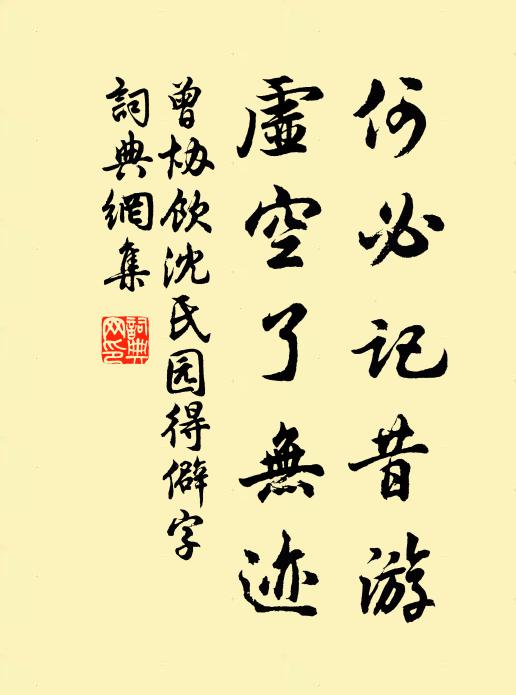 何必记昔游
虚空了無迹
曾协飲沈氏园得僻字
詞典網集
詞典网印